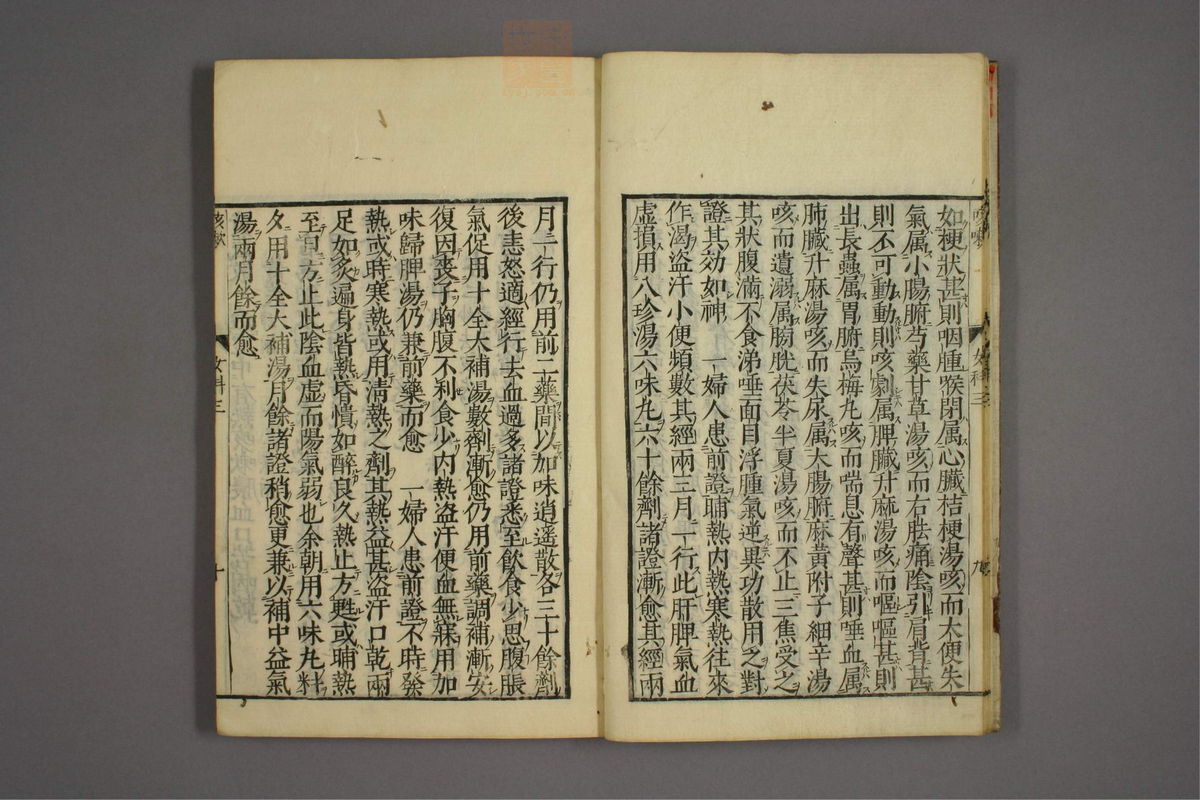 如梗狀甚則咽腫喉閉属心臓桔梗湯咳而大便失
氣属小腸腑芍藥甘草湯咳而右胠痛陰引肩背甚
則不可動動則咳劇属脾臓升麻湯咳而嘔嘔甚則
出長蟲属胃腑烏梅丸咳而喘息有聲甚則唾血属
肺臓升麻湯咳而失尿属大腸腑麻黄附子細辛湯
咳而遺溺属膀胱茯苓半夏湯咳而不止三焦受之
其狀腹滿不食涕唾面目浮腫氣逆異功散用之對
證其効如神 一婦人患前證晡熱内熱寒熱往來
作渴盗汗小便頻數其經兩三月一行此肝脾氣血
虚損用八珍湯六味丸六十餘劑諸證漸愈其經兩
女科三
九
月一行仍用前二藥間以加味逍遥散各三十餘劑
後恚怒適經行去血過多諸證悉至飲食少思腹脹
氣促用十全大補湯數劑漸愈仍用前藥調補漸安
復因喪子胸腹不利食少内熱盗汗便血無寐用加
味歸脾湯仍兼前藥而愈 一婦人患前證不時發
熱或時寒熱或用清熱之劑其熱益甚盗汗口乾兩
足如炙遍身皆熱昏憒如醉良久熱止方甦或晡熱
至旦方止此陰血虚而陽氣弱也余朝用六味丸料
夕用十全大補湯月餘諸證稍愈更兼以補中益氣
湯兩月餘而愈
咳嗽
女科三
十